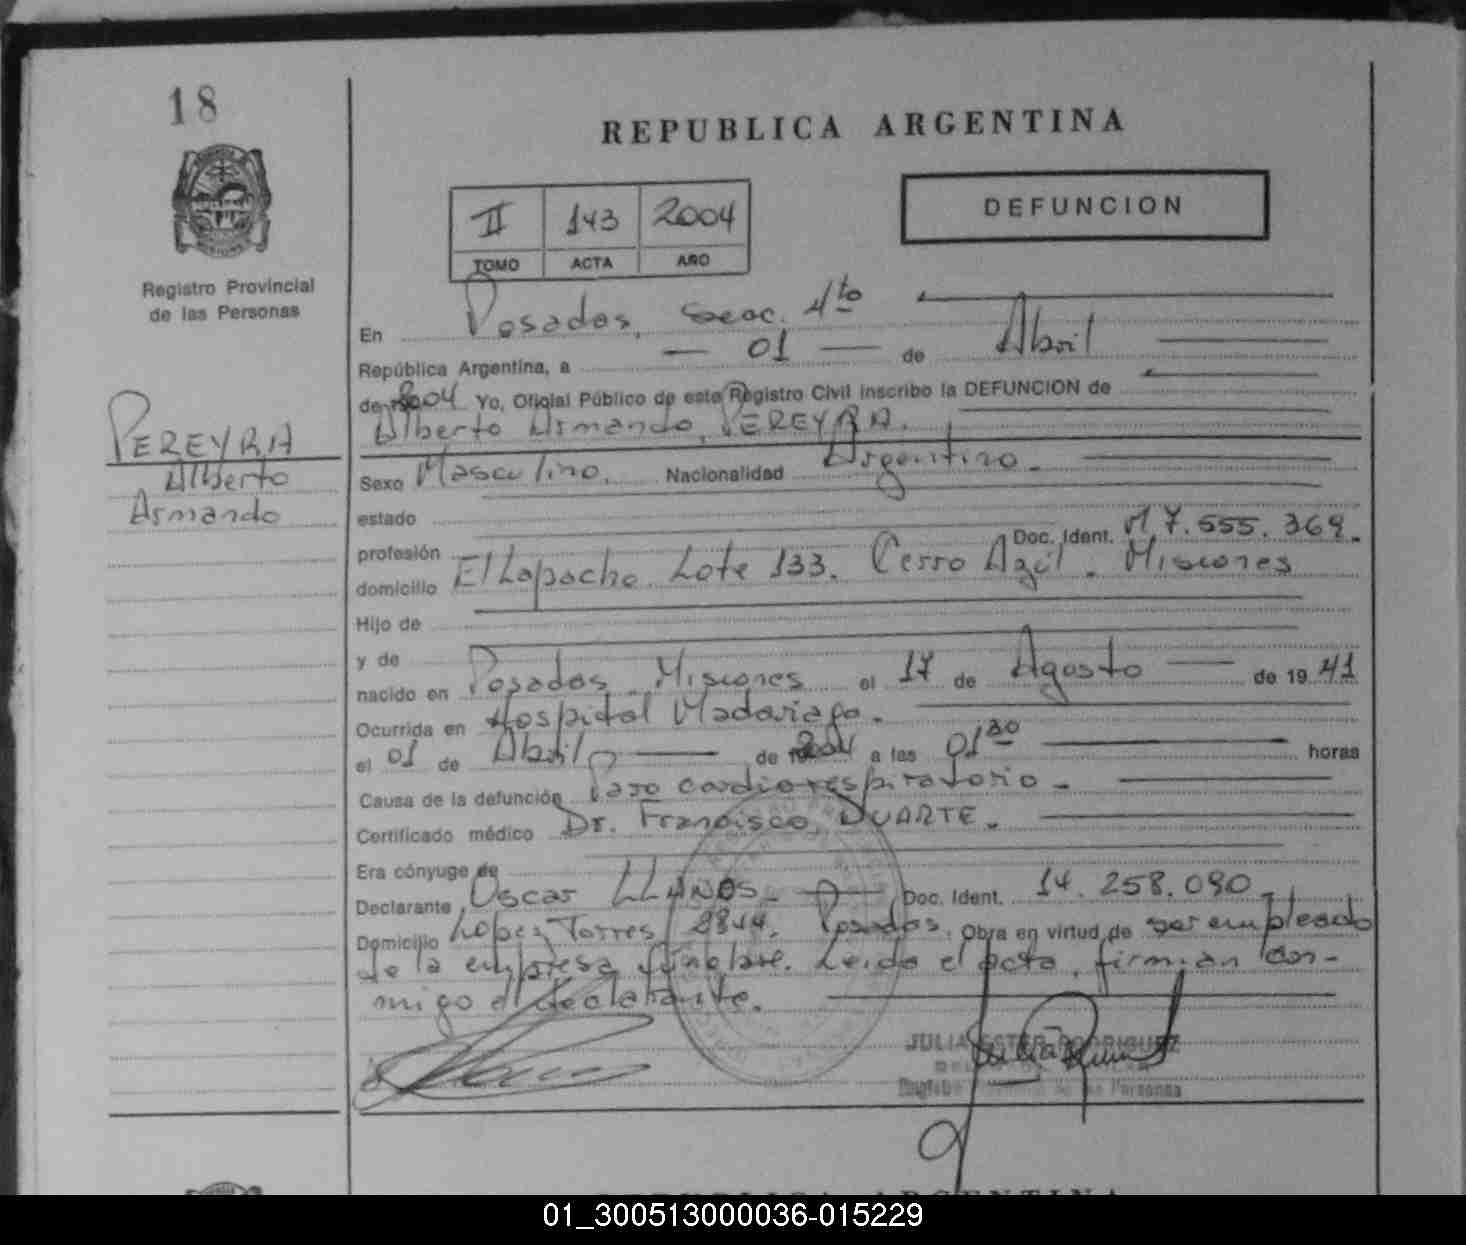 18
REPUBLICA ARGENTINA
DEFUNCION
II 143 2004
TOMO ACTA AÑO
Registro Provincial
de las Personas
PEREYRA
Alberto
Armando
En Posadas, Secc. 4to
República Argentina, a 01 de Abril
de 2004 Yo, Oficial Público de este Registro Civil inscribo la DEFUNCION de
Alberto Armando, PEREYRA.
Sexo Masculino. Nacionalidad Argentino.
estado
profesión Doc. Ident. M 7.555.369.
domicilio El Lapacho Lote 133. Cerro Azúl. Misiones
Hijo de
y de
nacido en Posadas Misiones el 17 de Agosto de 19 41
Ocurrida en Hospital Madariaga.
el 01 de Abril de 2004 a las 01 30 horas
Causa de la defunción Paro cardiorespiratorio
Certificado médico Dr. Francisco, DUARTE.
Era cónyuge de
Declarante Oscar LLANOS. Doc. Ident. 14.258.090
Domicilio Lopez Torres Posadas. Obra en virtud de ser empleado
de la empresa fúnebre. Leido el acta, firman con-
migo el declarante.
JULIA ESTER RODRIGUEZ
de las Personas
01_300513000036-015229